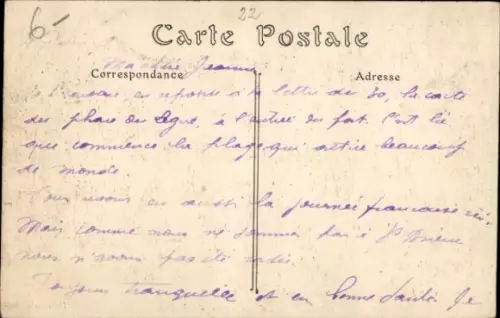 6-
22
Carte Postale
Ma chère Jeanne
Correspondance
Adresse
en réponse à ta lettre du 30, la carte
des phare du Ligue, à l'entrée du port. C'est là
que commence la plage qui attire beaucoup
de monde.
Nous avons eu aussi la journée française ici.
Mais comme nous ne sommes pas à
nous n'avons pas été
Toujours tranquille et en bonne santé. Je